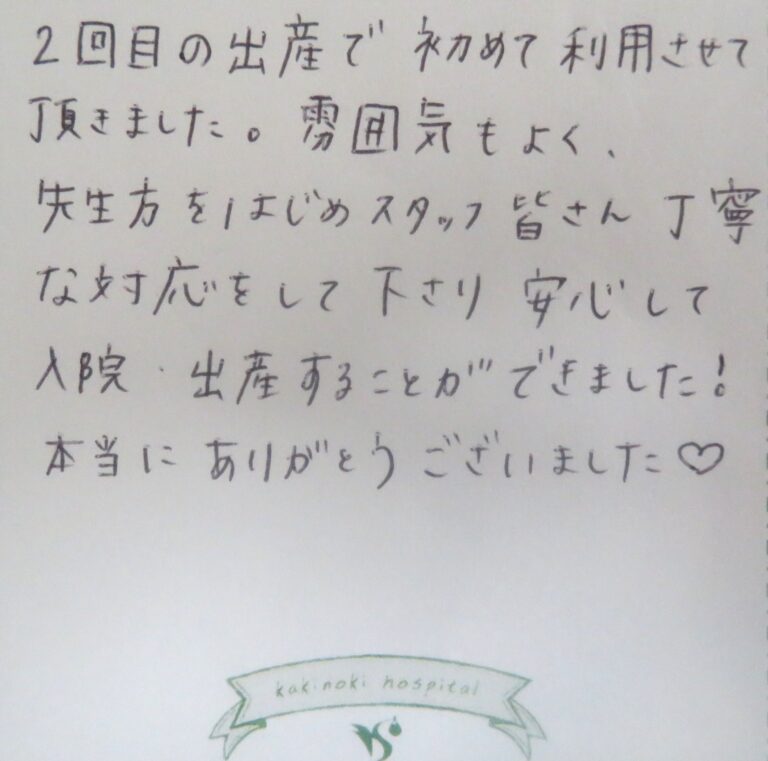 2回目の出産で 初めて 利用させて
頂きました。雰囲気もよく、
先生方をはじめスタッフ皆さん丁寧
な対応をして下さり 安心して
入院・出産することができました!
本当に ありがとう ございました♡
kakinoki hospital